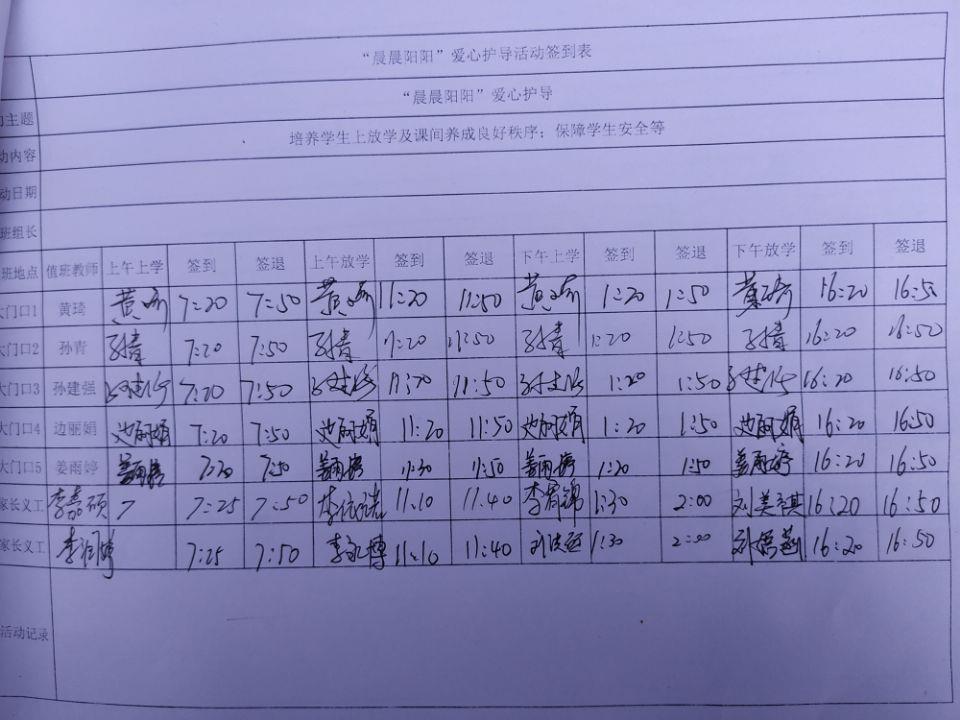 “晨晨阳阳”爱心护导活动签到表
主题 “晨晨阳阳”爱心护导
动内容 培养学生上放学及课间养成良好秩序；保障学生安全等
动日期
班组长
班地点 值班教师 上午上学 签到 签退 上午放学 签到 签退 下午上学 签到 签退 下午放学 签到 签退
大门口1 黄琦 黄琦 7:20 7:50 黄琦 11:20 11:50 黄琦 1:20 1:50 黄琦 16:20 16:50
大门口2 孙青 孙青 7:20 7:50 孙青 11:20 11:50 孙青 1:20 1:50 孙青 16:20 16:50
大门口3 孙建强 孙建强 7:20 7:50 孙建强 11:20 11:50 孙建强 1:20 1:50 孙建强 16:20 16:50
大门口4 边丽娟 边丽娟 7:20 7:50 边丽娟 11:20 11:50 边丽娟 1:20 1:50 边丽娟 16:20 16:50
大门口5 姜雨婷 姜雨婷 7:20 7:50 姜雨婷 11:50 姜雨婷 1:20 1:50 姜雨婷 16:20 16:50
家长义工 李嘉硕 7:25 7:50 11.10 11.40 1:30 2:00 16:20 16:50
家长义工 7:25 7:50 11:10 11:40 1:30 2:00 16:20 16:50
活动记录